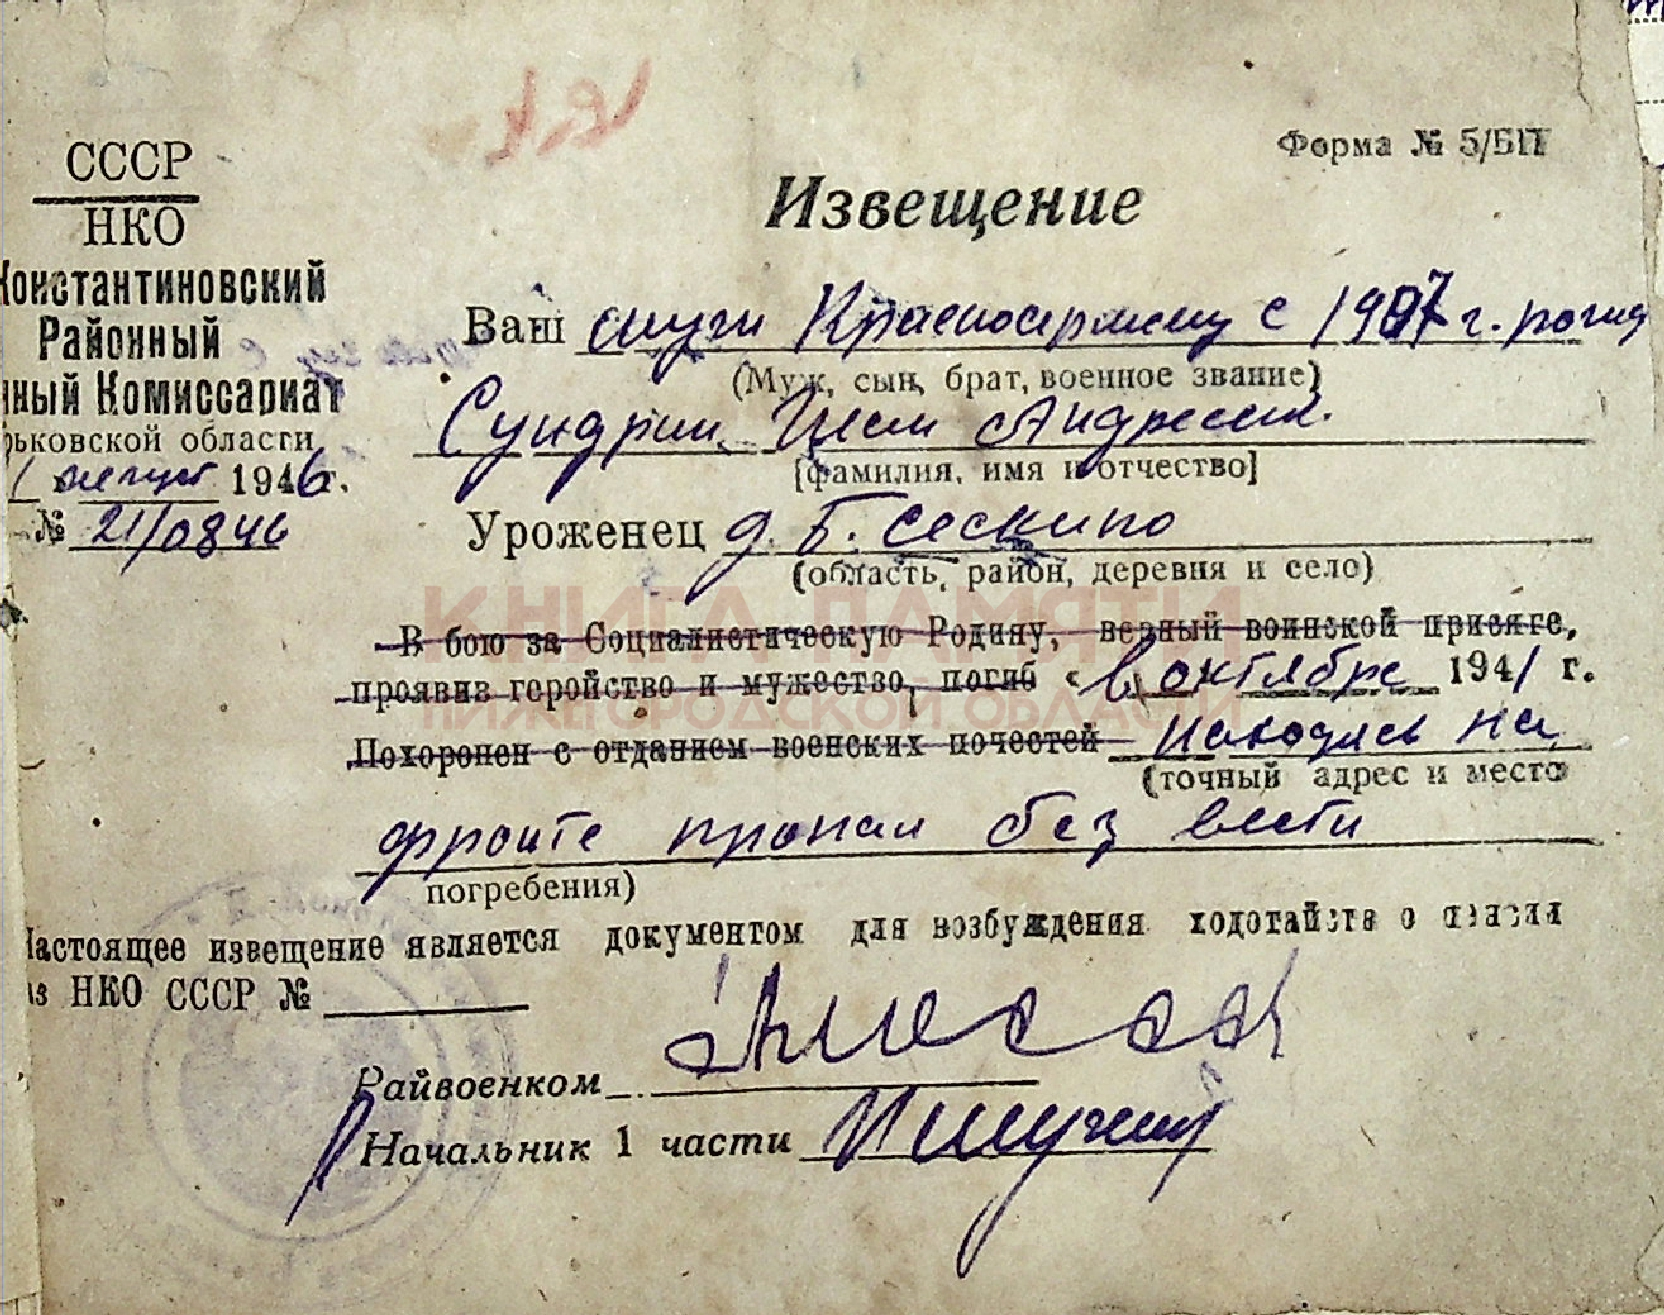 Форма № 5/БП
СССР
НКО
Константиновский
Районный
нный Комиссариат
рьковской области
1 август 1946 г.
№ 21/0846
Извещение
Ваш муж Красноармеец с 1907 г. рожд
(Муж, сын, брат, военное звание)
Сундрин Андреев.
[фамилия, имя и отчество]
Уроженец д. Б. Сескино
(область, район, деревня и село)
КНИГА ПАМЯТИ
НИЖЕГОРОДСКОЙ ОБЛАСТИ
В бою за Социалистическую Родину, верный воинской присяге,
проявив геройство и мужество, погиб « в октябре 1941 г.
Похоронен с отданием военских почестей находясь на
(точный адрес и место
фронте пропал без вести
погребения)
Настоящее извещение является документом для возбуждения ходотайств о пенсии
аз НКО СССР №
Райвоенком
Начальник 1 части